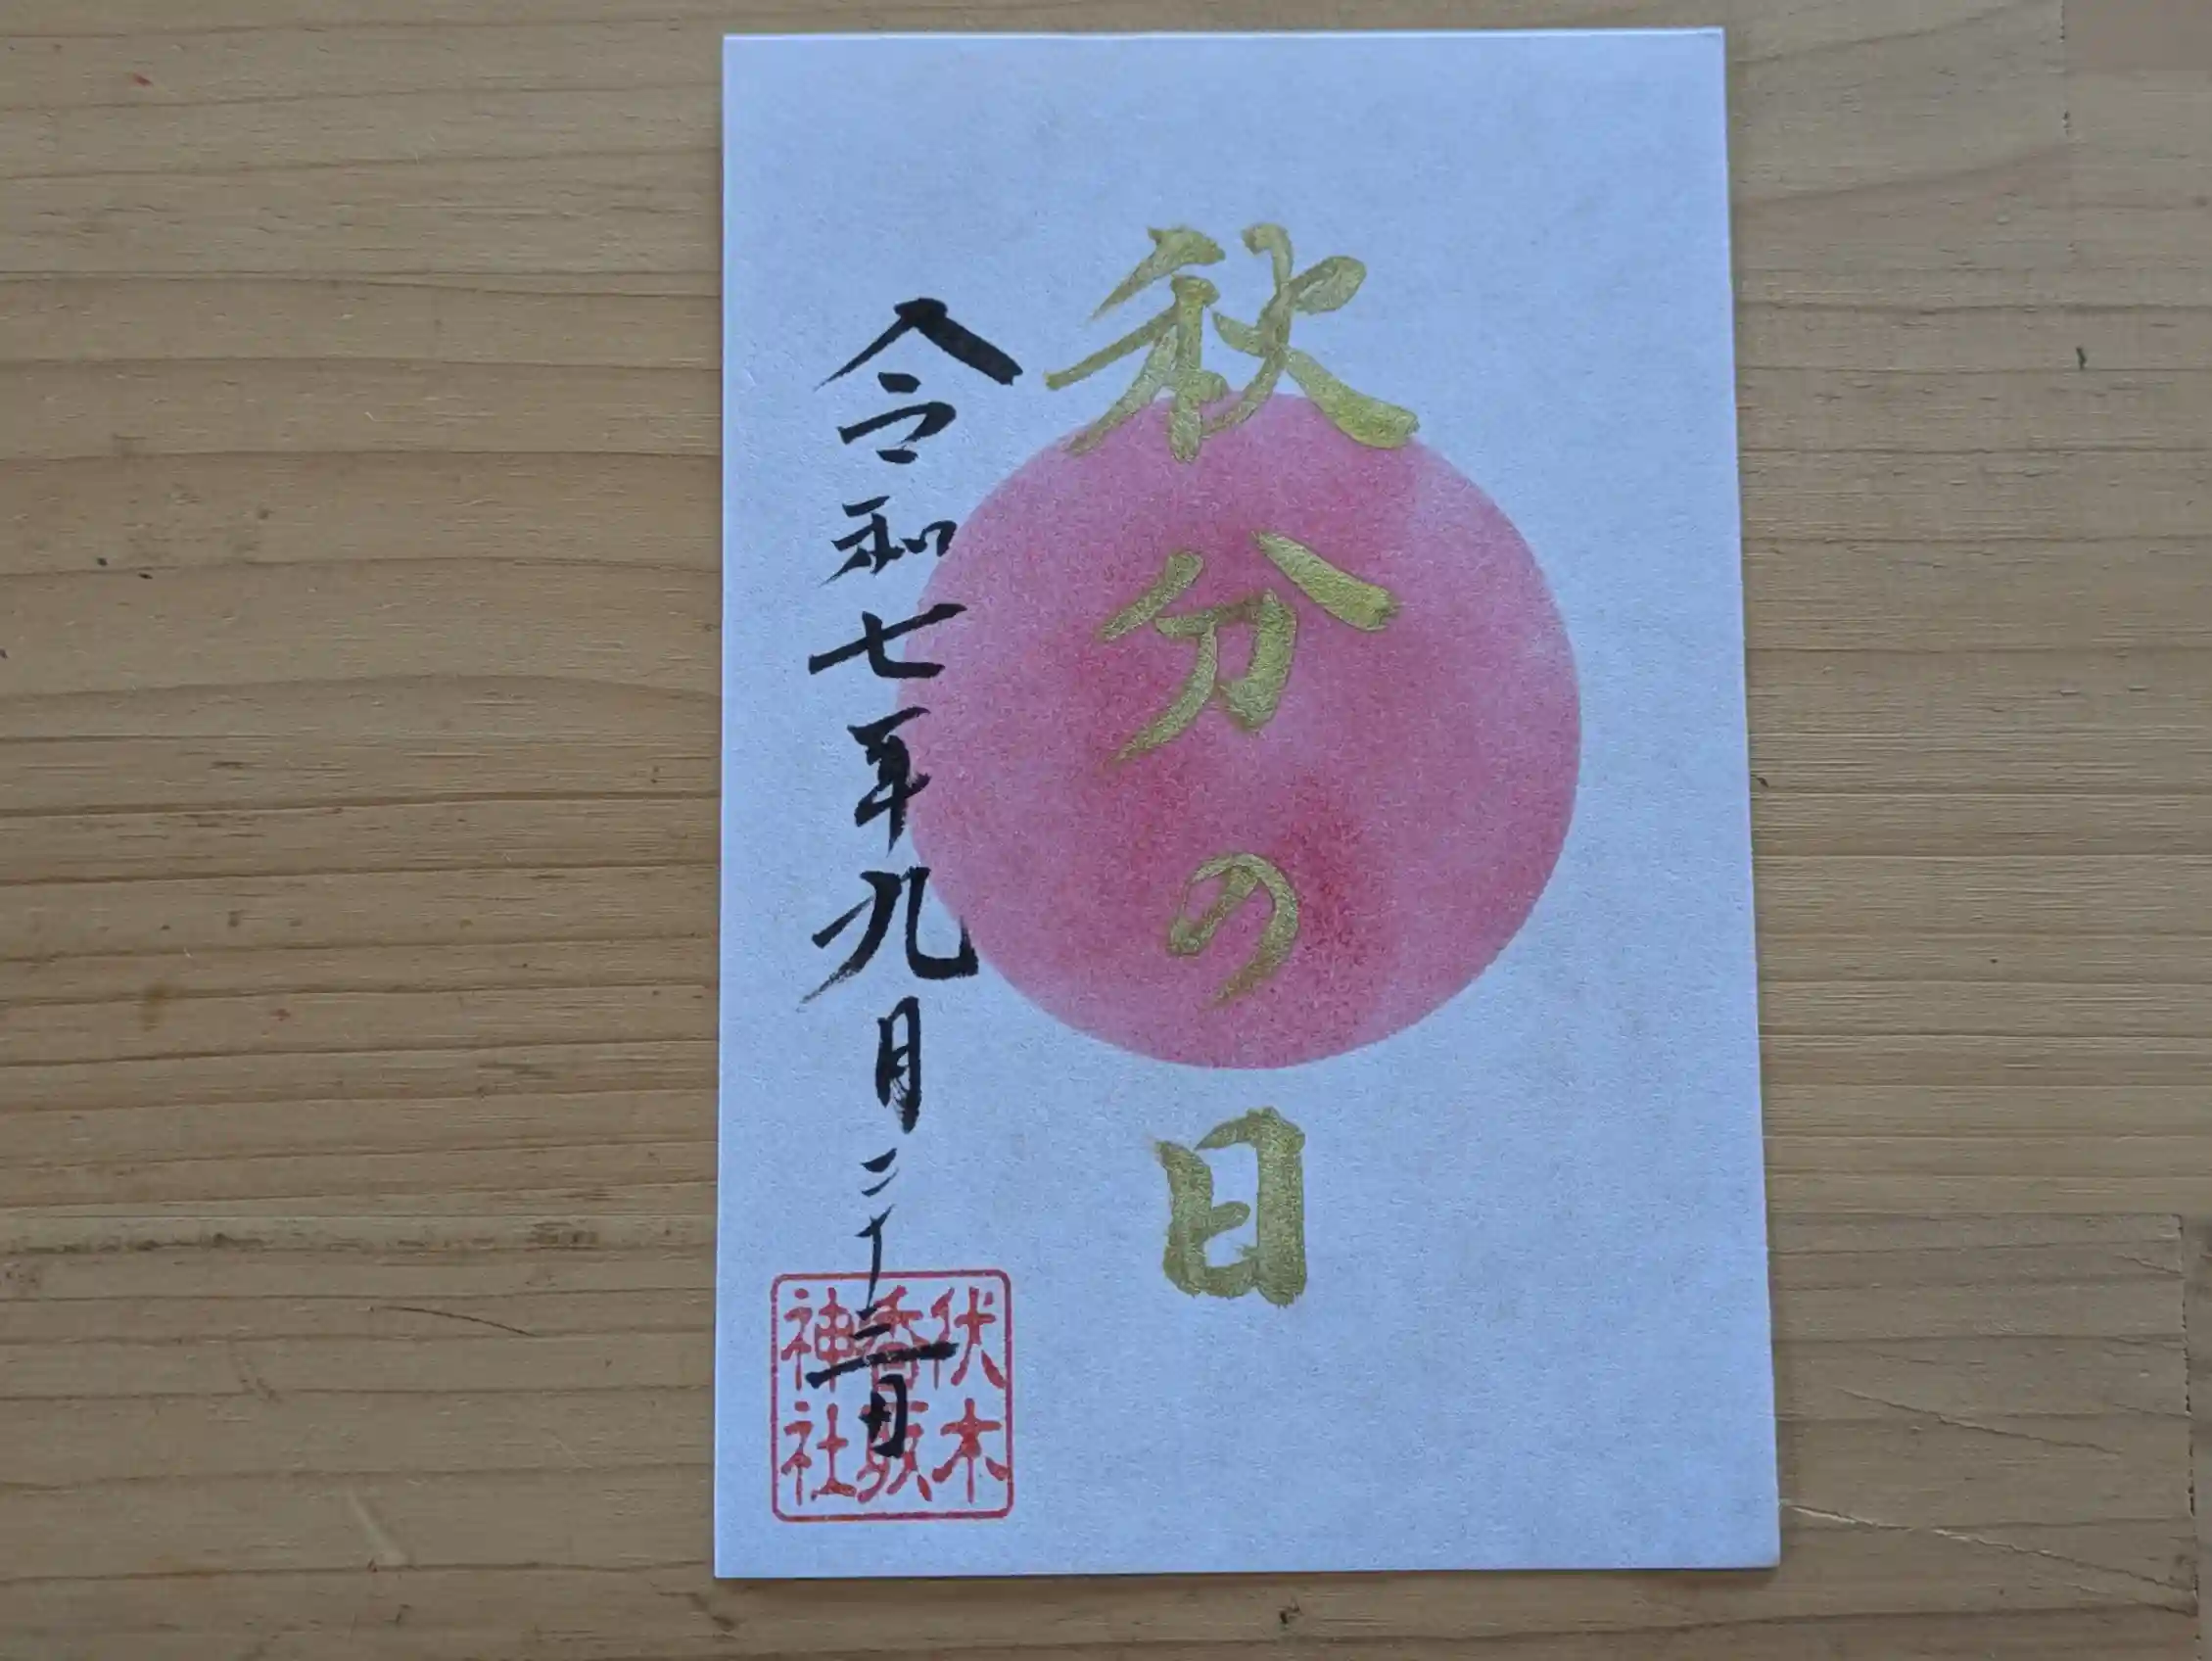 秋分の日
令和七年九月二十三日
伏木
香取
神社